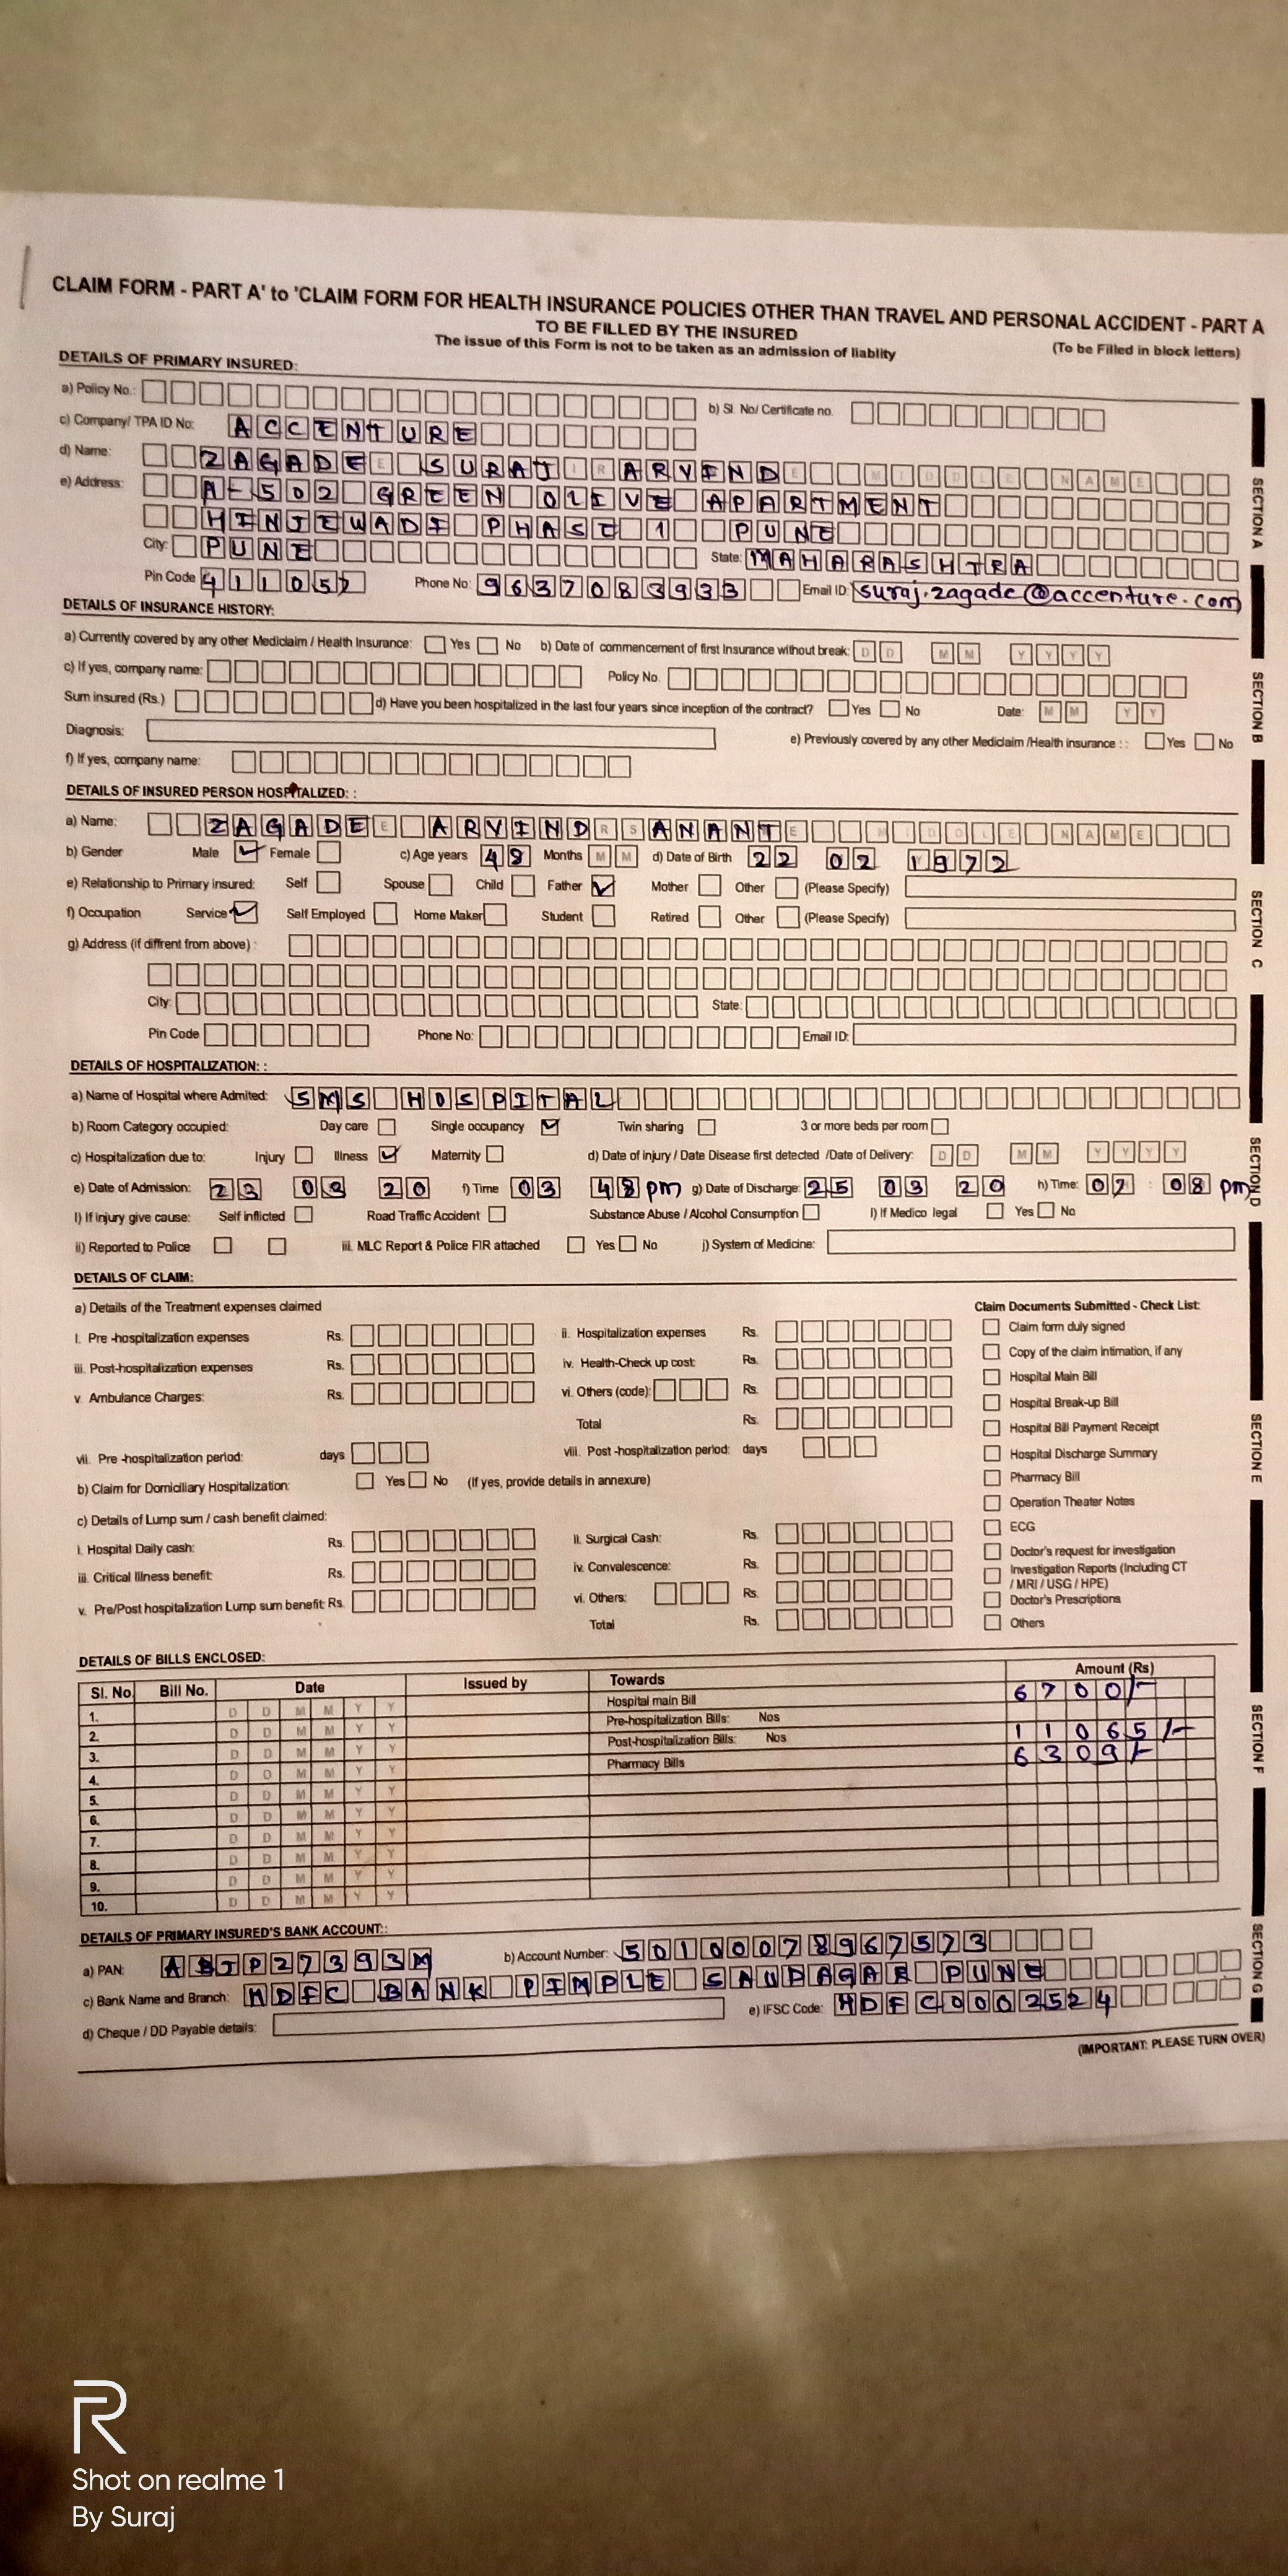 CLAIM FORM - PART A' to 'CLAIM FORM FOR HEALTH INSURANCE POLICIES OTHER THAN TRAVEL AND PERSONAL ACCIDENT - PART A
TO BE FILLED BY THE INSURED
The issue of this Form is not to be taken as an admission of liablity (To be Filled in block letters)
DETAILS OF PRIMARY INSURED:
a) Policy No.: b) Sl. No/ Certificate no.
c) Company/ TPA ID No: ACCENTURE
d) Name: ZAGADE SURAJ ARVIND
e) Address: A-502 GREEN OLIVE APARTMENT
HINJEWADI PHASE 1 PUNE
City: PUNE State: MAHARASHTRA
Pin Code 411057 Phone No: 9637083933 Email ID: suraj.zagade@accenture.com
SECTION A
DETAILS OF INSURANCE HISTORY:
a) Currently covered by any other Mediclaim / Health Insurance: Yes No b) Date of commencement of first Insurance without break: D D M M Y Y Y Y
c) If yes, company name: Policy No.
Sum insured (Rs.) d) Have you been hospitalized in the last four years since inception of the contract? Yes No Date: M M Y Y
Diagnosis: e) Previously covered by any other Mediclaim /Health insurance : : Yes No
f) If yes, company name:
SECTION B
DETAILS OF INSURED PERSON HOSPITALIZED: :
a) Name: ZAGADE ARVIND ANANT
b) Gender Male Female c) Age years 48 Months M M d) Date of Birth 22 02 1972
e) Relationship to Primary insured: Self Spouse Child Father Mother Other (Please Specify)
f) Occupation Service Self Employed Home Maker Student Retired Other (Please Specify)
g) Address (if diffrent from above) :
City: State:
Pin Code Phone No: Email ID:
SECTION C
DETAILS OF HOSPITALIZATION: :
a) Name of Hospital where Admited: SMS HOSPITAL
b) Room Category occupied: Day care Single occupancy Twin sharing 3 or more beds per room
c) Hospitalization due to: Injury Illness Maternity d) Date of injury / Date Disease first detected /Date of Delivery: D D M M Y Y Y Y
e) Date of Admission: 23 03 20 f) Time 03 48 pm g) Date of Discharge: 25 03 20 h) Time: 07 : 08 pm
I) If injury give cause: Self inflicted Road Traffic Accident Substance Abuse / Alcohol Consumption I) If Medico legal Yes No
ii) Reported to Police iii. MLC Report & Police FIR attached Yes No j) System of Medicine:
SECTION D
DETAILS OF CLAIM:
a) Details of the Treatment expenses claimed Claim Documents Submitted - Check List:
I. Pre -hospitalization expenses Rs. ii. Hospitalization expenses Rs. Claim form duly signed
iii. Post-hospitalization expenses Rs. iv. Health-Check up cost: Rs. Copy of the claim intimation, if any
v. Ambulance Charges: Rs. vi. Others (code): Rs. Hospital Main Bill
Hospital Break-up Bill
Total Rs. Hospital Bill Payment Receipt
vii. Pre -hospitalization period: days viii. Post -hospitalization period: days Hospital Discharge Summary
b) Claim for Domiciliary Hospitalization: Yes No (If yes, provide details in annexure) Pharmacy Bill
Operation Theater Notes
c) Details of Lump sum / cash benefit claimed: ECG
i. Hospital Daily cash: Rs. ii. Surgical Cash: Rs. Doctor's request for investigation
iii. Critical Illness benefit: Rs. iv. Convalescence: Rs. Investigation Reports (Including CT / MRI / USG / HPE)
v. Pre/Post hospitalization Lump sum benefit: Rs. vi. Others: Rs. Doctor's Prescriptions
Total Rs. Others
SECTION E
DETAILS OF BILLS ENCLOSED:
Sl. No. Bill No. Date Issued by Towards Amount (Rs)
1. D D M M Y Y Hospital main Bill 6700/-
2. D D M M Y Y Pre-hospitalization Bills: Nos
3. D D M M Y Y Post-hospitalization Bills: Nos 11065/-
4. D D M M Y Y Pharmacy Bills 6309/-
5. D D M M Y Y
6. D D M M Y Y
7. D D M M Y Y
8. D D M M Y Y
9. D D M M Y Y
10. D D M M Y Y
SECTION F
DETAILS OF PRIMARY INSURED'S BANK ACCOUNT::
a) PAN: b) Account Number: 50100078967573
c) Bank Name and Branch: HDFC BANK PIMPLE SAUDAGAR PUNE
d) Cheque / DD Payable details: e) IFSC Code: HDFC0002524
SECTION G
(IMPORTANT: PLEASE TURN OVER)
R
Shot on realme 1
By Suraj